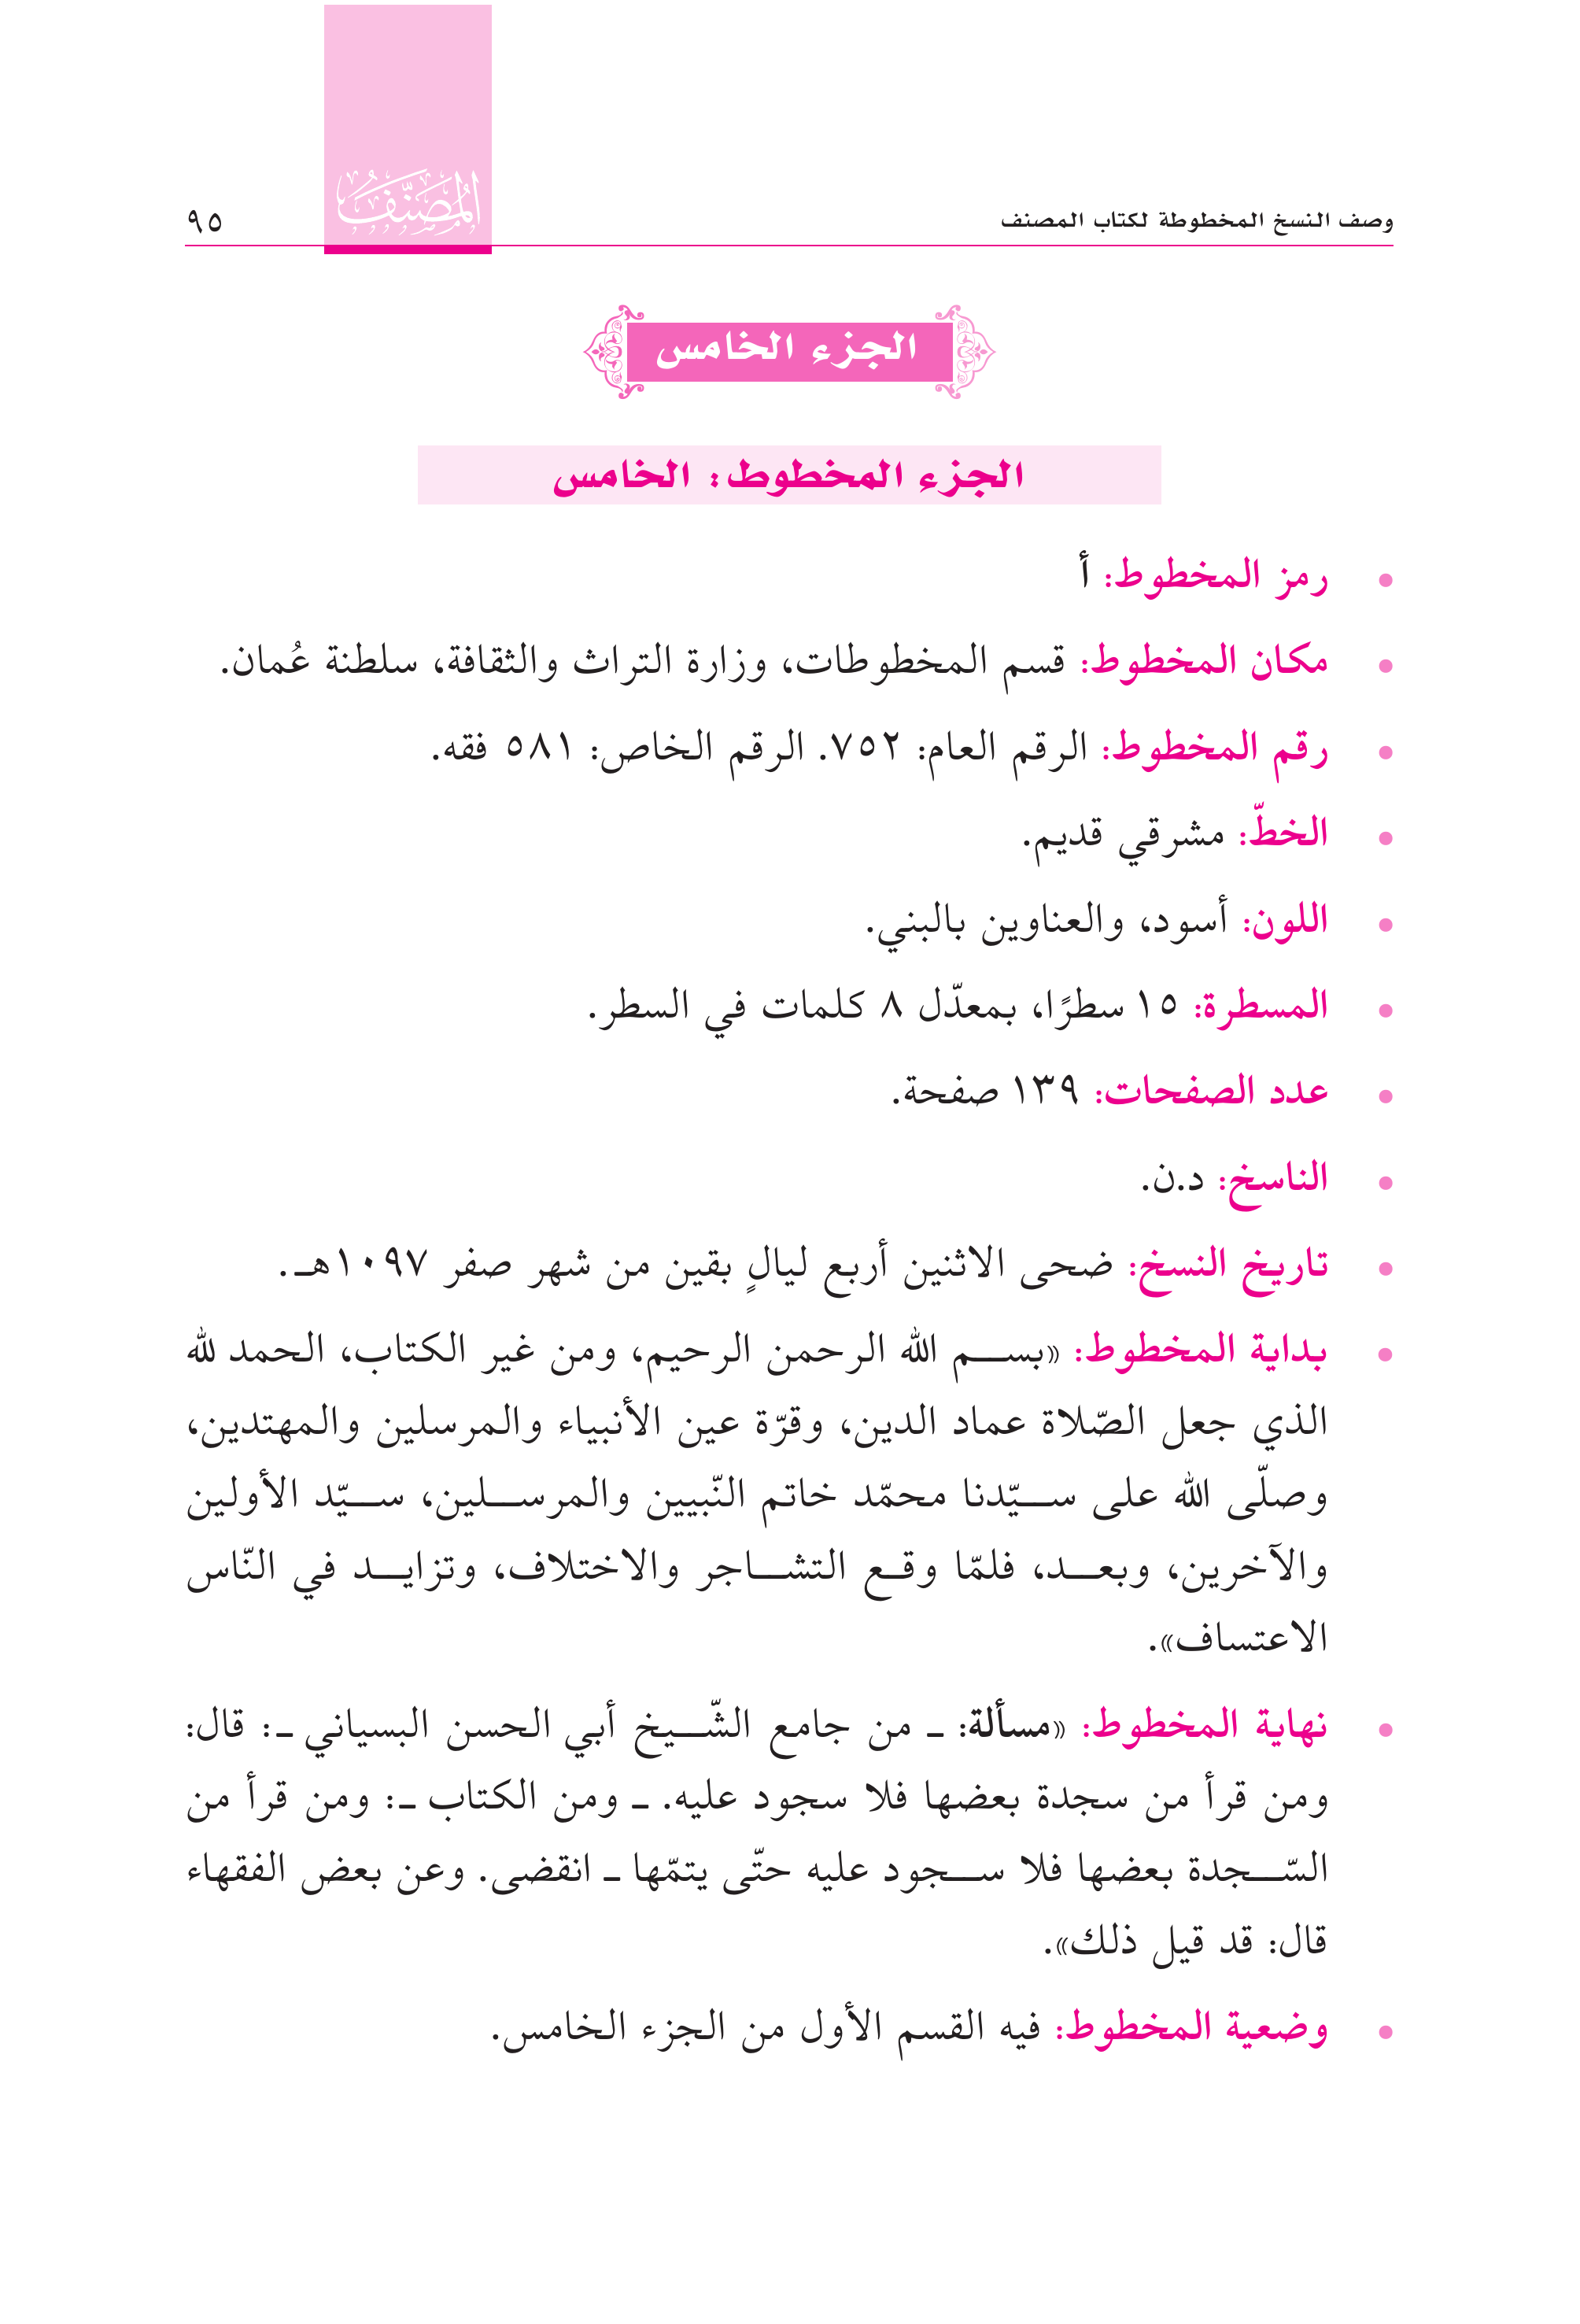 وصف النسخ المخطوطة لكتاب المصنف
المُصَنَّف
٩٥
الجزء الخامس
الجزء المخطوط: الخامس
• رمز المخطوط: أ
• مكان المخطوط: قسم المخطوطات، وزارة التراث والثقافة، سلطنة عُمان.
• رقم المخطوط: الرقم العام: ٧٥٢. الرقم الخاص: ٥٨١ فقه.
• الخطّ: مشرقي قديم.
• اللون: أسود، والعناوين بالبني.
• المسطرة: ١٥ سطرًا، بمعدّل ٨ كلمات في السطر.
• عدد الصفحات: ١٣٩ صفحة.
• الناسخ: د.ن.
• تاريخ النسخ: ضحى الاثنين أربع ليالٍ بقين من شهر صفر ١٠٩٧هـ.
• بداية المخطوط: «بسم الله الرحمن الرحيم، ومن غير الكتاب، الحمد لله
الذي جعل الصّلاة عماد الدين، وقرّة عين الأنبياء والمرسلين والمهتدين،
وصلّى الله على سيّدنا محمّد خاتم النّبيين والمرسلين، سيّد الأولين
والآخرين، وبعد، فلمّا وقع التشاجر والاختلاف، وتزايد في النّاس
الاعتساف».
• نهاية المخطوط: «مسألة: ـ من جامع الشّيخ أبي الحسن البسياني ـ: قال:
ومن قرأ من سجدة بعضها فلا سجود عليه. ـ ومن الكتاب ـ: ومن قرأ من
السّجدة بعضها فلا سجود عليه حتّى يتمّها ـ انقضى. وعن بعض الفقهاء
قال: قد قيل ذلك».
• وضعية المخطوط: فيه القسم الأول من الجزء الخامس.